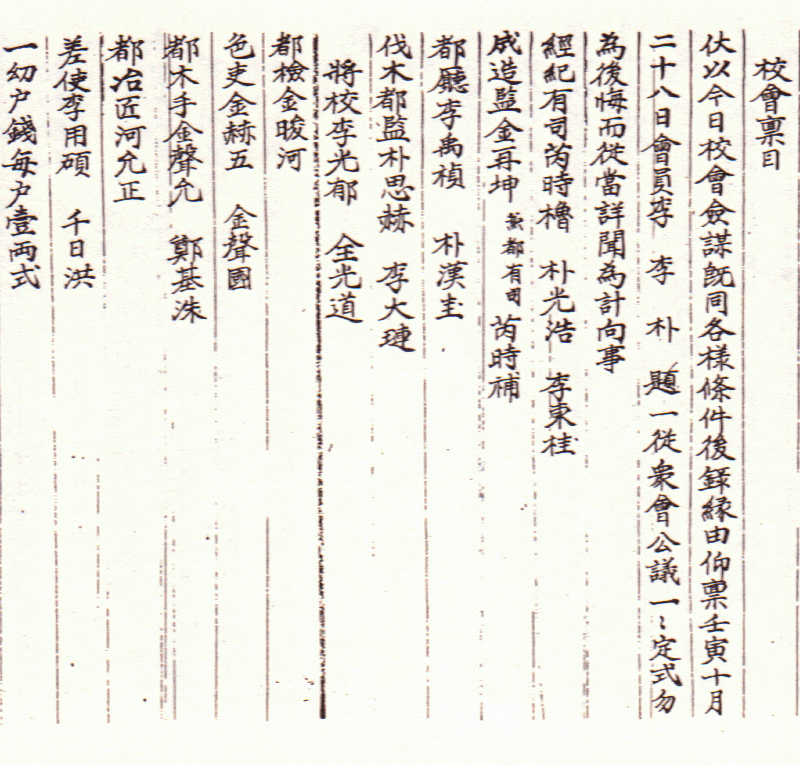 校會禀目
伏以今日校會僉謀旣同各樣條件後錄緣由仰禀壬寅十月
二十八日會員李 李 朴 題一從衆會公議一〻定式勿
為後悔而從當詳聞為計向事
經紀有司芮時櫓 朴光浩 李東桂
成造監金再坤 兼都有司 芮時補
都廳李禹禎 朴漢圭
伐木都監朴思赫 李大璉
將校李光郁 全光道
都檢金晙河
色吏金赫五 金聲國
都木手金聲允 鄭基洙
都冶匠河允正
差使李用碩 千日洪
一幼戶錢每戶壹兩式